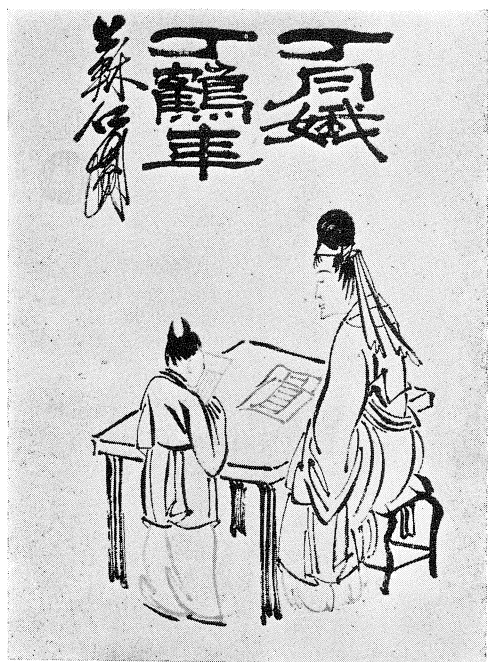 丁月娥
丁鶴年
蘇仁山